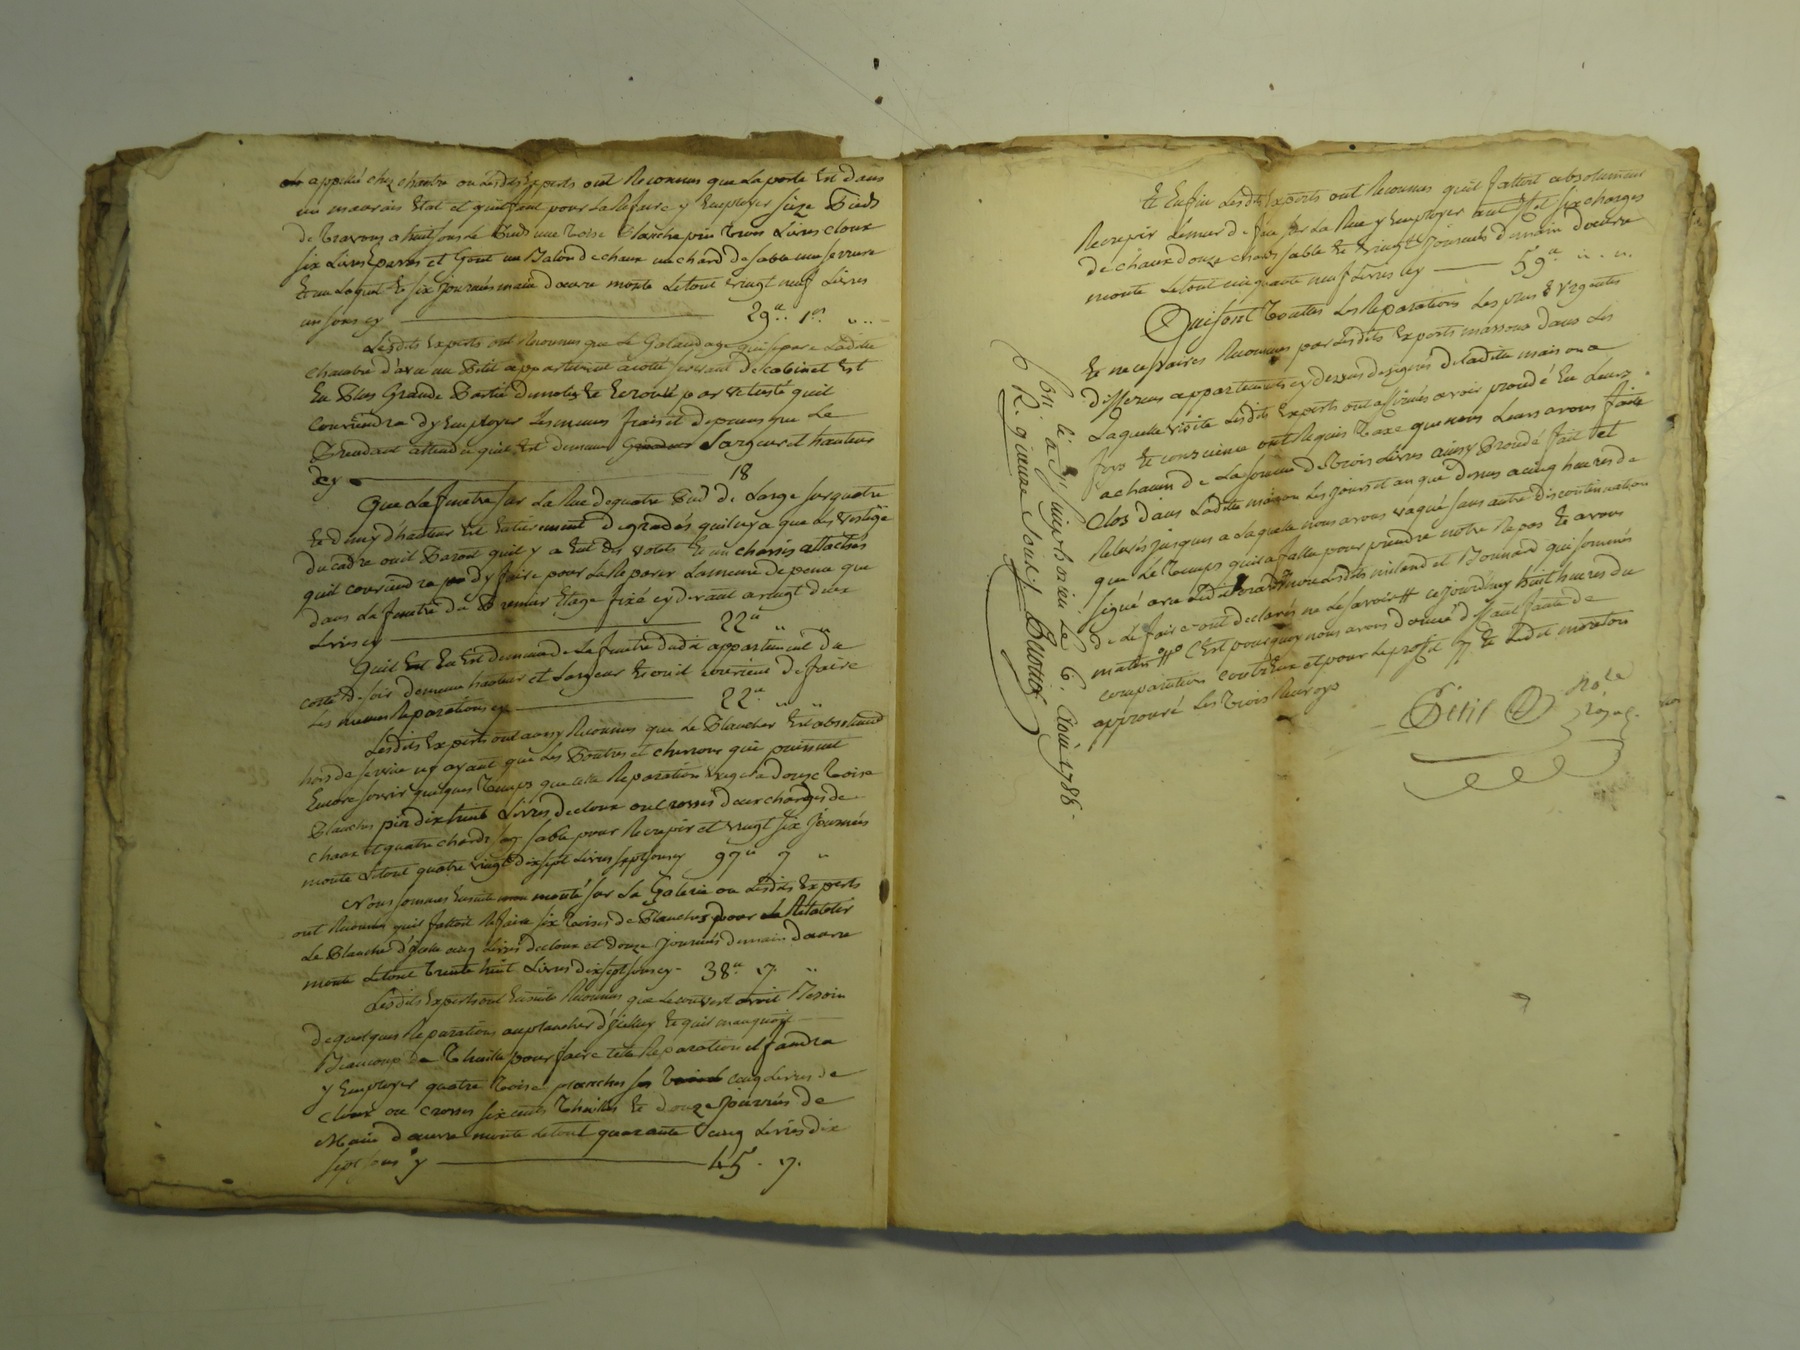 appellé chez chantre ou Lesdits Experts ont Reconnus que La porte Est dans
un mauvais Etat et quil faut pour La Refaire y Employer seize Pieds
de travons a huit sous le Pieds une toise Planche pin trois Livres cloux
six Livres parres et Gont un Balon de chaux un chard de sable une serrure
Et un Loquet Et six journées main d'œuvre monte Letout vingt neuf Livres
un sous cy 29ᵗᵗ 1ˢ
Lesdits Experts ont Reconnus que Le Galandage qui separe Ladite
chambre d'avec un Petit appartement a coté servant De cabinet Est
En Plus Grande Partie demolis Et Ecroulé par vetusté quil
conviendra dy Employer Les memes frais et depenses que Le
Precedant attendu quil Est de meme Largeur et hauteur
cy 18
Que La fenetre sur La Rue de quatre Pied de Large sur quatre
Et demy d'hauteur Est Entierement degradés quil ny a que Les vestige
du cadre ou il Paroit quil y a Eut des volets Et un chassis attachés
quil conviendra dy faire pour La Reparer La meme depense que
dans La fenetre du Premier Etage fixé cy devant a vingt deux
Livres cy 22ᵗᵗ
Quil En Est de meme de La fenetre dudit appartement du
coté De soir de meme hauteur et Largeur Et ou il convient De faire
Les memes Reparations cy 22ᵗᵗ
Lesdits Experts ont aussy Reconnus que Le Plancher Est absolument
hors de service ny ayant que Les Poutres et chevrons qui puissent
Encore servir quelques Temps que cette Reparation Exige douze Toise
Planches pin dix huit Livres de cloux ou crosses deux charges de
chaux et quatre chards sable pour Recrepir et vingt six journées
monte Letout quatre vingt dix sept Livres sept sous cy 97ᵗᵗ 7
Nous sommes Ensuite monté sur La Galerie ou Lesdits Experts
ont Reconnus quil falloit Refaire six toises de Planches pour Le Retablir
Le Planché d'icelle cinq Livres de cloux et douze journées de main d'œuvre
monte Letout trente huit Livres dix sept sous cy 38ᵗᵗ 17
Lesdits Experts ont Ensuite Reconnus que Le couvert avoit Besoin
de quelques Reparations au plancher d'Icelluy Et quil manquoit
Beaucoup de Thuille pour faire cette Reparation il faudra
y Employer quatre toise planches cinq Livres de
cloux ou crosses six cents Thuilles Et douze journées de
Main d'œuvre monte Letout quarante cinq Livres dix
sept sous cy 45 17
Et Enfin Lesdits Experts ont Reconnus quil falloit absolument
Recrepir Le mur de face sur La Rue y Employer six charges
de chaux douze chards sable Et vingt journées de main d'œuvre
monte Letout cinquante neuf Livres cy 59ᵗᵗ
Qui sont Toutes Les Reparations Les plus Urgentes
Et necessaires Reconnues par Lesdits Experts massons dans Les
differens appartements cy dessus designés de ladite maison a
Laquelle visite Lesdits Experts ont affirmés avoir procedé En Leurs
foys Et conscience ont Requis Taxe que nous Leurs avons faite
a chacun de La somme de trois Livres ainsy Procedé fait et
Clos dans Ladite maison Les jours et an que dessus a cinq heures de
Relevés jusques a Laquelle nous avons vaqué sans autre discontinuation
que Le Temps quil a fallu pour prendre notre Repas Et avons
signé avec non Lesdits et Bonnard qui sommés
de Le faire ont declarés ne Le savoir ce jourdhuy huit heures du
matin C'est pourquoy nous avons donné deffaut faute de
comparution contre Eux et pour Le profit
approuvé Les trois Renvoys
Petit Noʳᵉ
Royal
Con lé à le 6. août 1786.
R. quinze sous Buottot